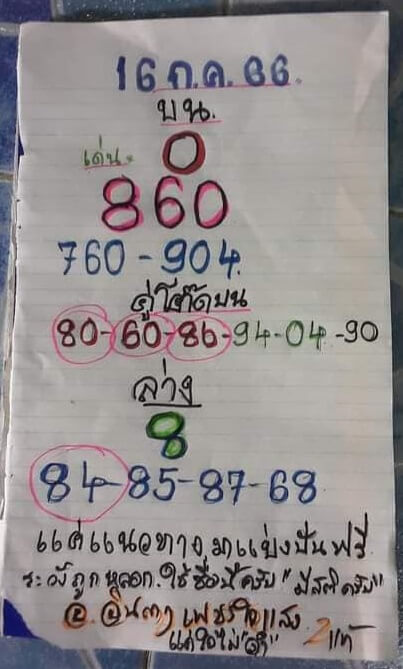 16 ก.ค. 66.
บน.
เด่น. 0
860
760 - 904.
คู่โต๊ดบน
80 - 60 - 86 - 94 - 04 - 90
ล่าง
8
84 - 85 - 87 - 68
แค่แนวทาง มาแบ่งปันฟรี
ระวังถูกหลอก. ใช้ชื่อนี้ครับ "มีสติครับ"
อ. จินตา เพชรใจแสง
แต่ใจไม่ "ดำ" แท้